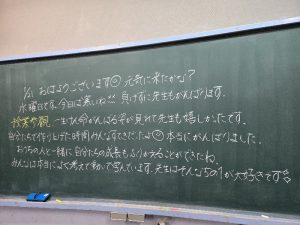 1/21 おはようございます☺ 元気に来たかな?
水曜日です。今日は寒いね 負けずに先生もがんばります。
授業参観 一生けん命がんばる姿が見れて先生も嬉しかったです。
自分たちで作り上げた時間 みんなすてきだったよ☺ 本当にがんばりました。
おうちの人と一緒に自分たちの成長もふりかえることができたね。
みんなは本当によく考えて動いて学んでいます。先生はそんな5の1が大好きです